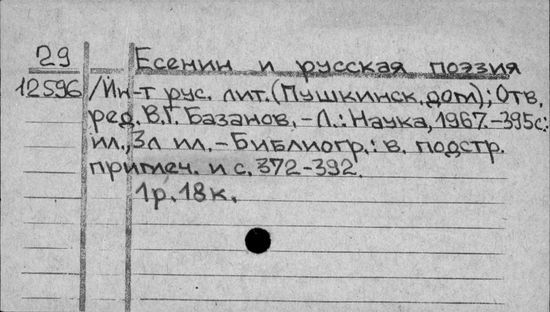 29 Есенин и русская поэзия
12596 /Ин-т рус. лит. (Пушкинск. дом); Отв.
ред. В.Г. Базанов. - Л.: Наука, 1967. - 395с:
ил., 3л ил. - Библиогр.: в. подстр.
примеч. и с. 372-392.
1р. 18к.